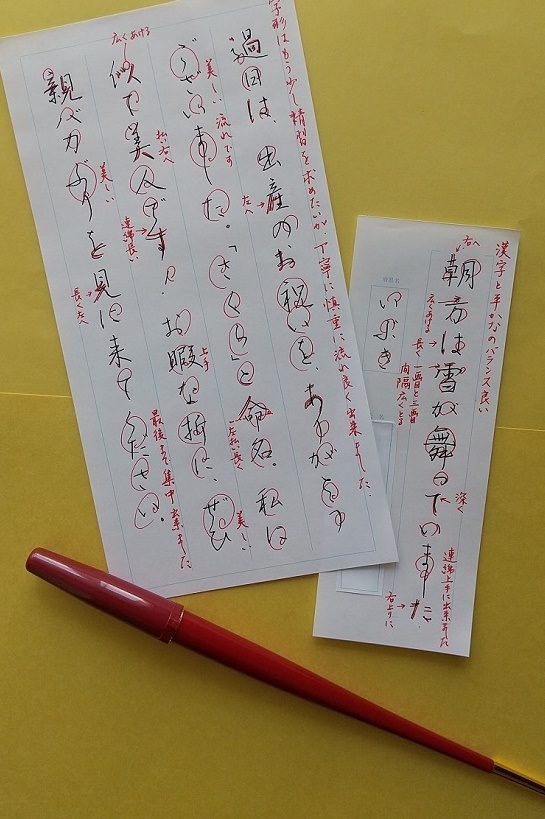 漢字と平かなのバランス良い
右へ
朝方は雪が舞っていました
深く
連綿上手に出来ました
広くあける
長く
一画目と三画目
間隔広くとる
右上りに
いぶき
字形はもう少し精習を求めたいが、丁寧に慎重に流れ良く出来ました。
過日は、出産のお祝いを、ありがとう
左へ
美しい流れです
ございました。「さくら」と命名。私に
左払い長く
美しい
広くあける
払い右へ
似て美人です!。お暇な折に、ぜひ
上手
連綿長い
美しい
親バカぶりを見に来てください。
長く左へ
最後まで集中出来ました